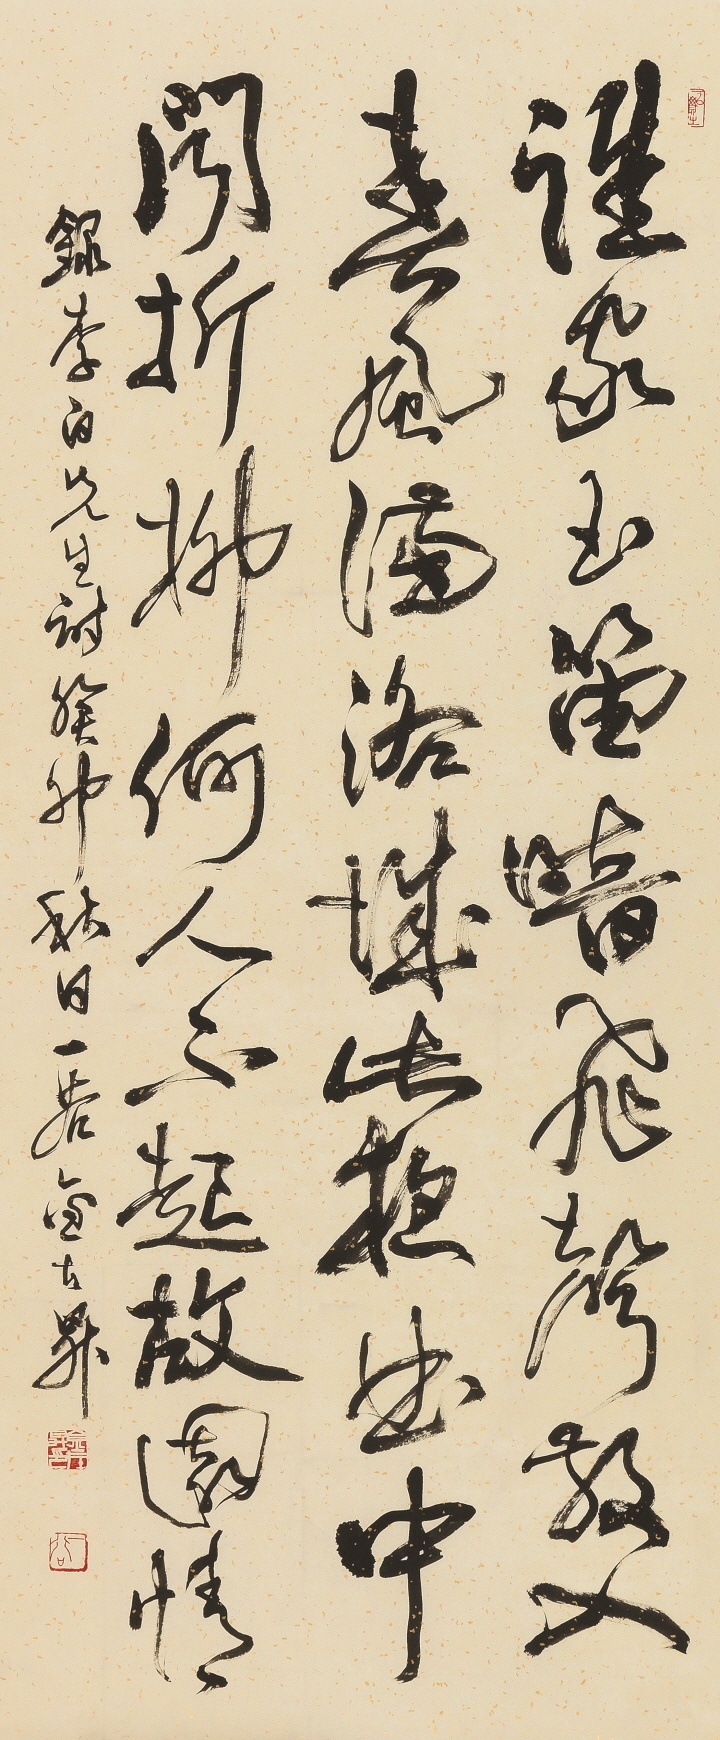 誰家玉笛暗飛聲散入
春風滿洛城此夜曲中
聞折柳何人不起故園情
錄李白先生詩癸卯秋日一若金士昇